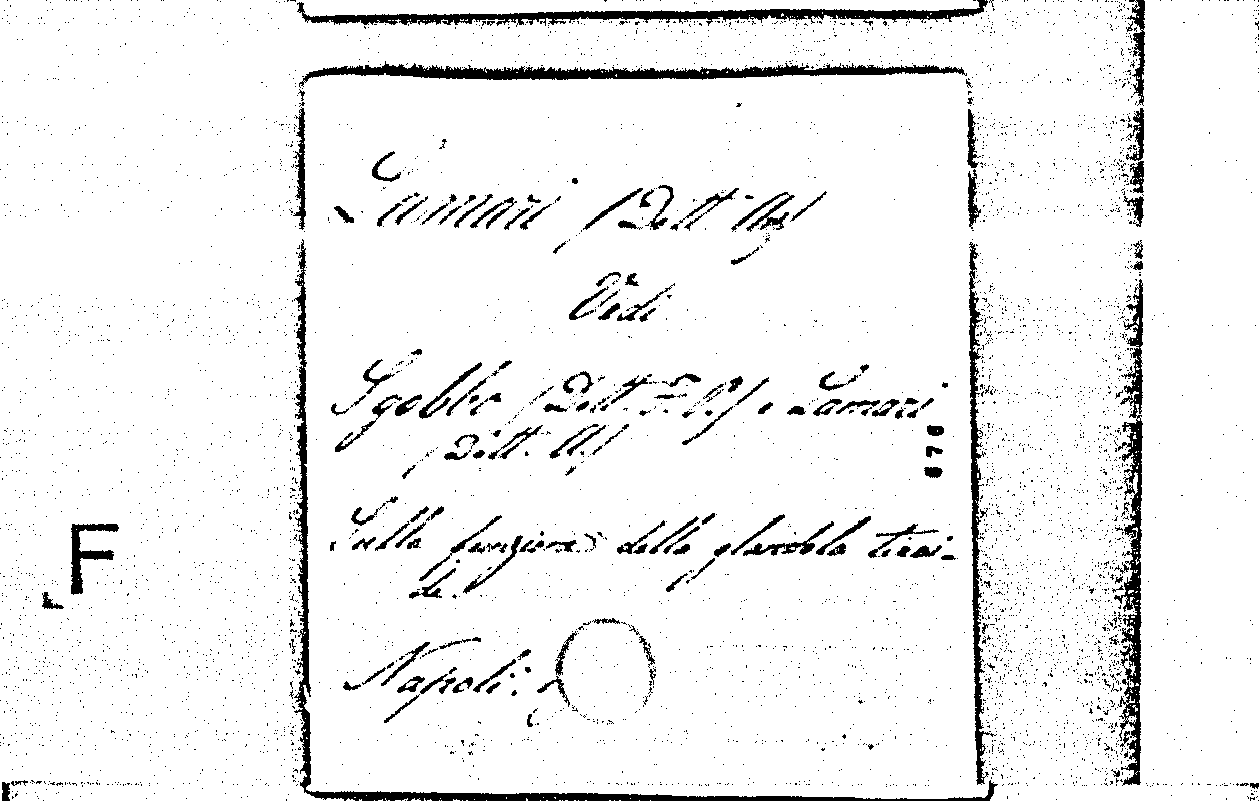 Lamari (Dott. A.)
Vedi
Sgobbo (Dott. F. P.) e Lamari
(Dott. A.)
676
Sulla funzione della glandola tiroi-
de.
Napoli.
F